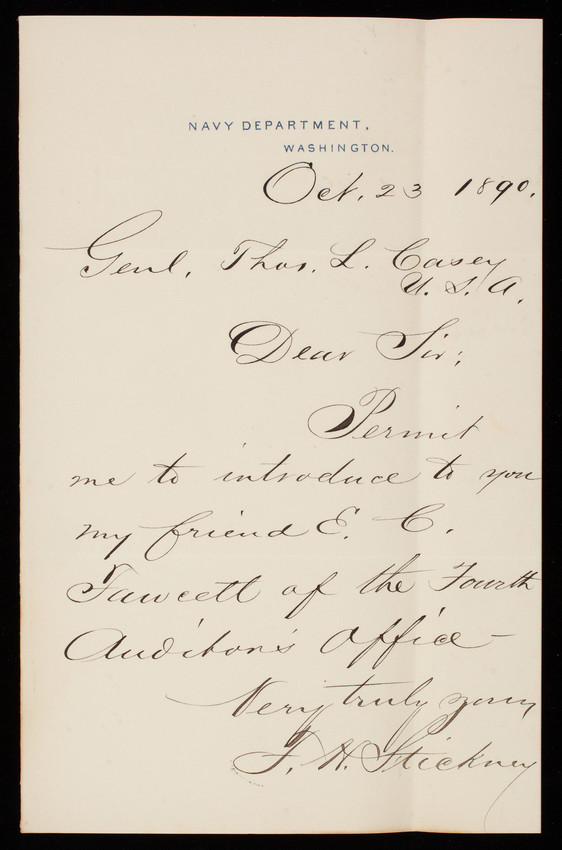 NAVY DEPARTMENT,
WASHINGTON.
Oct. 23 1890.
Genl. Thos. L. Casey
U. S. A.
Dear Sir;
Permit
me to introduce to you
my friend E. C.
Fawcett of the Fourth
Auditor's Office—
Very truly yours
F. H. Stickney